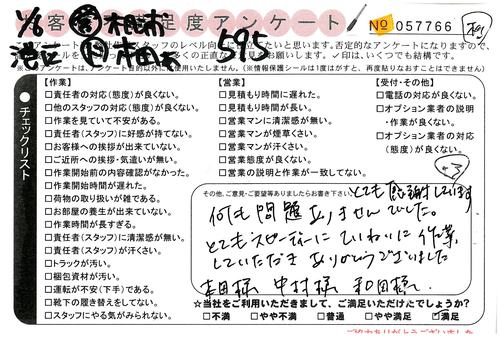 お客様満足度アンケート
No 057766
595
1/6
アンケートは、
スタッフのレベル向上に
たいと思います。否定的なアンケートになりますので、
多くの正直な
✓印は、いくつでも結構です。
アンケートは、アンケート目的以外に
使用いたしません。(※情報保護シールは1度はがすと、再度貼りなおすことはできません)
チェックリスト
【作業】
□責任者の対応(態度)が良くない。
□他のスタッフの対応(態度)が良くない。
□作業を見ていて不安がある。
□責任者(スタッフ)に好感が持てない。
□お客様への挨拶が出来ていない。
□ご近所への挨拶・気遣いが無い。
□作業開始前の内容確認がなかった。
□作業開始時間が遅れた。
□荷物の取り扱いが雑である。
□お部屋の養生が出来ていない。
□作業時間が長すぎる。
□責任者(スタッフ)に清潔感が無い。
□責任者(スタッフ)が汗くさい。
□トラックが汚い。
□梱包資材が汚い。
□運転が不安(下手)である。
□靴下の履き替えをしてない。
□スタッフにやる気がみられない。
【営業】
□見積もり時間に遅れた。
□見積もり時間が長い。
□営業マンに清潔感が無い。
□営業マンが煙草くさい。
□営業マンが汗くさい。
□営業態度が良くない。
□営業の説明と作業が一致してない。
【受付・その他】
□電話の対応が良くない。
□オプション業者の説明
・作業が良くない。
□オプション業者の対応
(態度)が良くない。
その他、ご意見・ご要望等ありましたらお書き下さい。
とても感謝しています
何も問題ありませんでした。
とてもスピーディーにていねいに作業
していただきありがとうございました
吉田様 中村様 和田様
☆当社をご利用いただきまして、ご満足いただけたでしょうか?
□不満 □やや不満 □普通 □やや満足 ☑満足
ご協力ありがとうございました